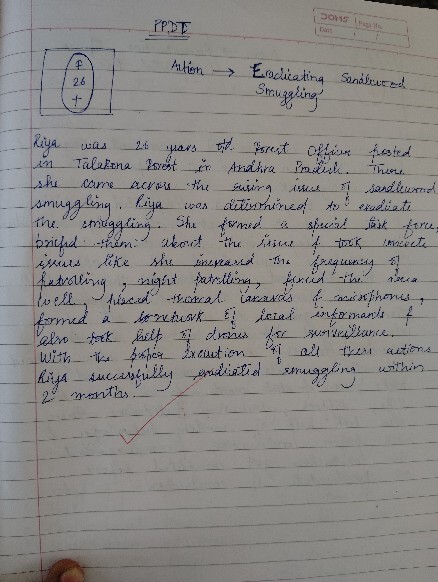 PPDT
JOMS Page No.
Date
F
26
+
Action → Eradicating Sandlewood
Smuggling
Riya was 26 years old Forest Officer posted
in Talakona Forest in Andhra Pradesh. There
she came across the rising issue of sandlewood
smuggling. Riya was determined to eradicate
the smuggling. She formed a special task force,
briefed them about the issue & took concrete
issues like she increased the frequency of
patrolling, night patrolling, fenced the area
well, placed thermal & microphones,
formed a network of local informants &
also took help of drones for surveillance.
With the proper execution of all these actions
Riya successfully eradicated smuggling within
2 months.